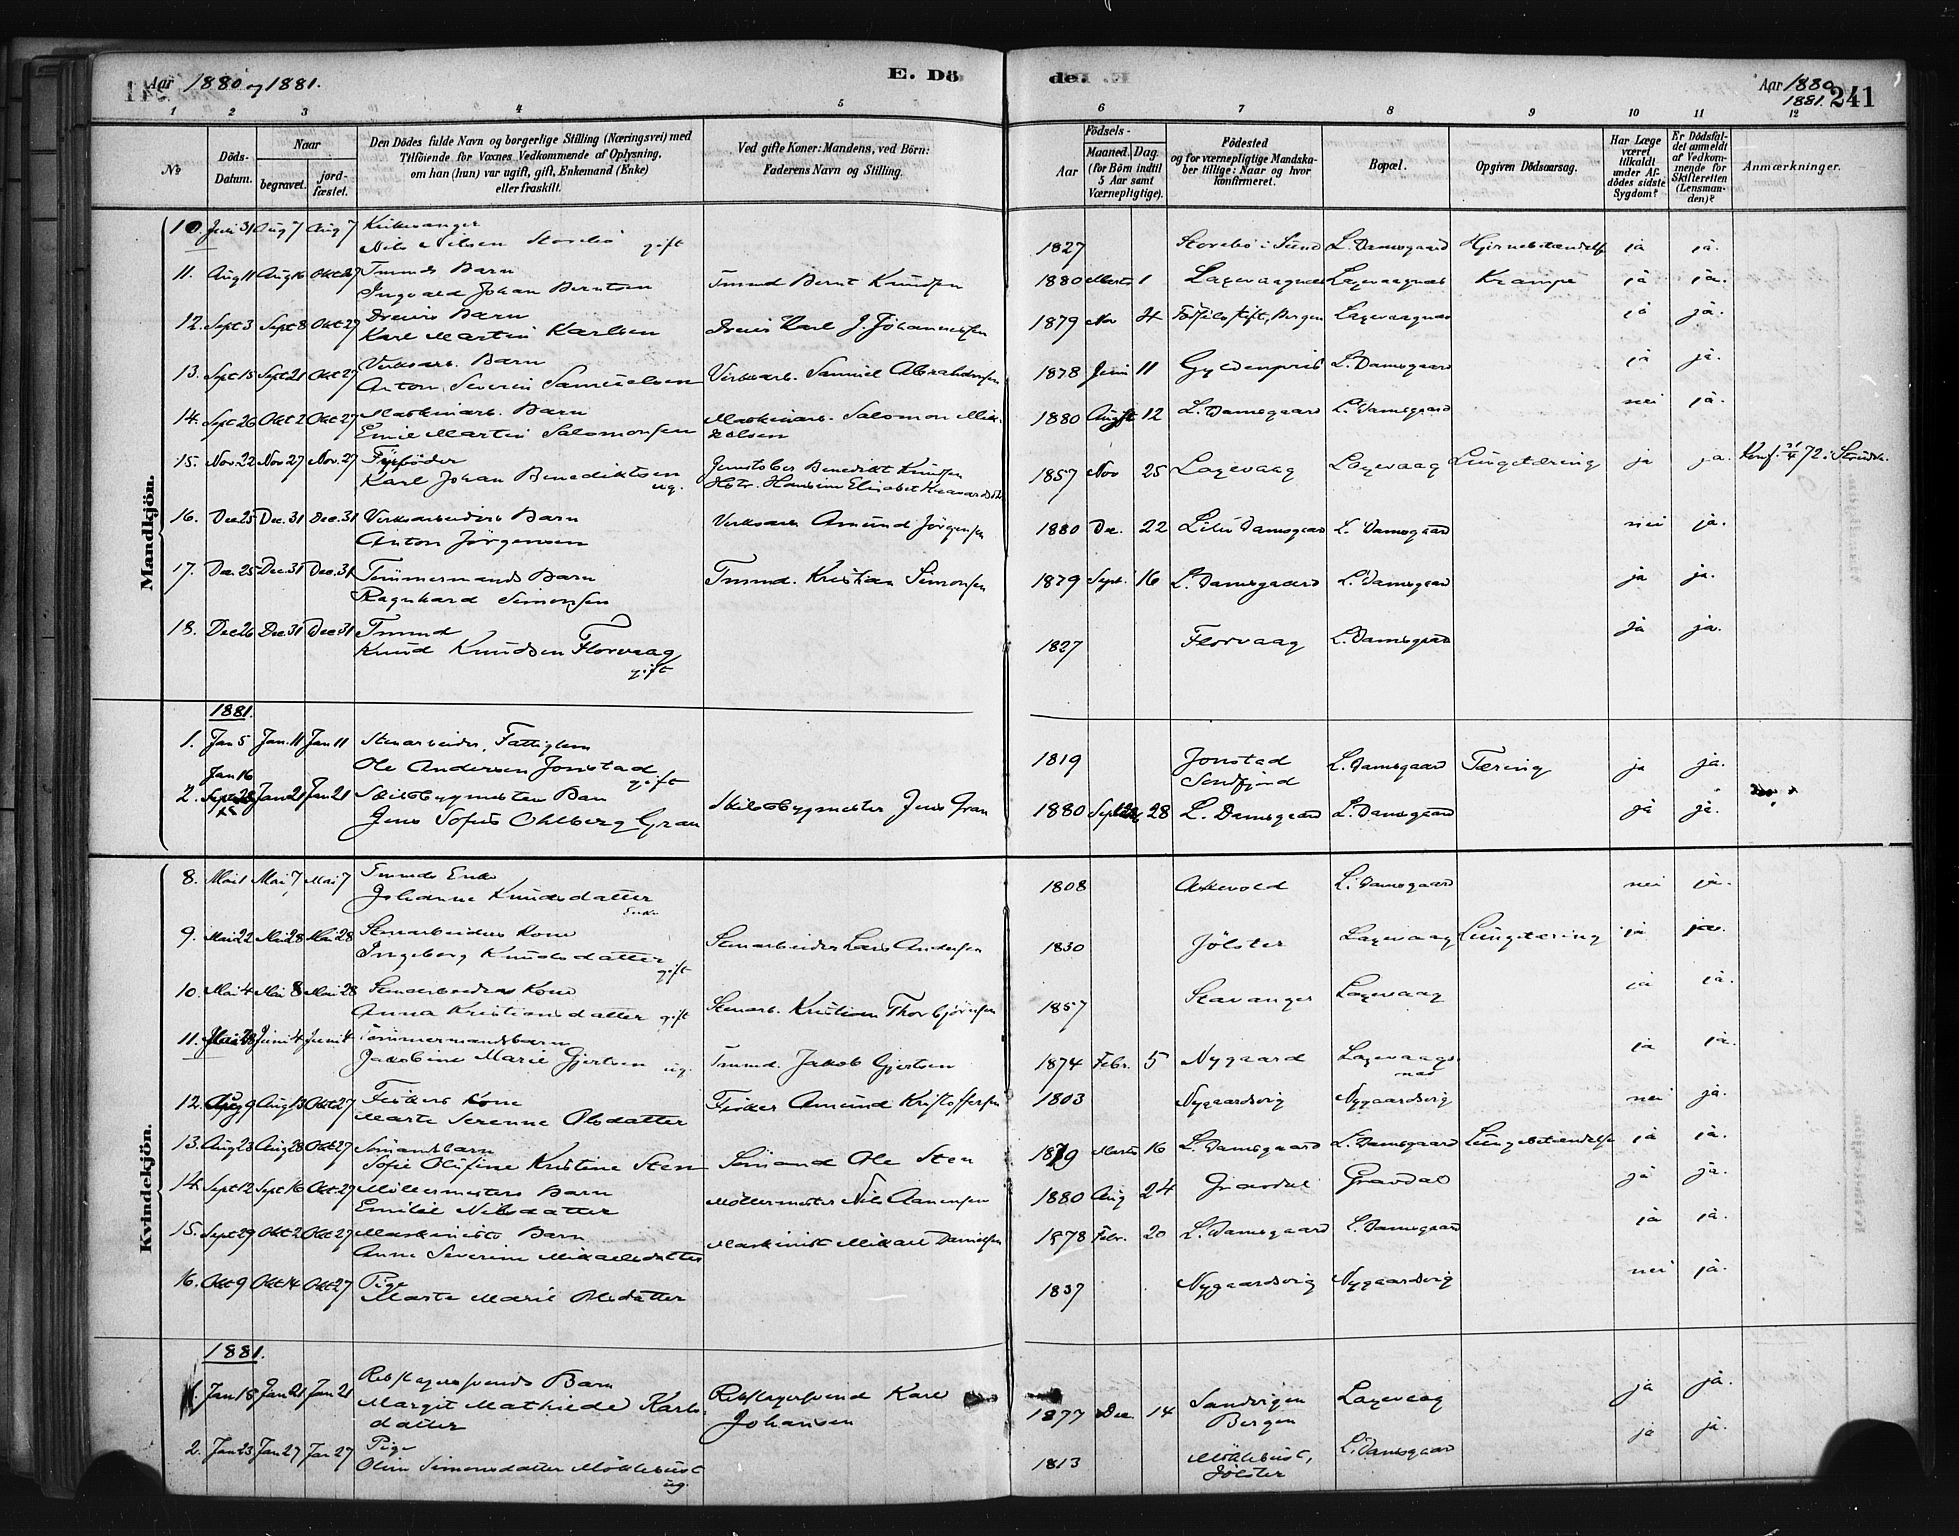 Aar 1880 og 1881.
E. Dö
de.
Aar 1880
1881. 241
1 2 3 4 5 6 7 8 9 10 11 12
No
Döds-
Datum.
Naar
begravet.
jord-
fæstet.
Den Dödes fulde Navn og borgerlige Stilling (Næringsvei) med
Tilföiende for Voxnes Vedkommende af Oplysning,
om han (hun) var ugift, gift, Enkemand (Enke)
eller fraskilt.
Ved gifte Koner: Mandens, ved Börn:
Faderens Navn og Stilling.
Födsels-
Aar
Maaned. Dag.
(for Börn indtil
5 Aar samt
Værnepligtige).
Födested
og for værnepligtige Mandska-
ber tillige: Naar og hvor
konfirmeret.
Bopæl.
Opgiven Dödsaarsag.
Har Læge
været
tilkaldt
under Af-
dödes sidste
Sygdom?
Er Dödsfal-
det anmeldt
af Vedkom-
mende for
Skifteretten
(Lensman-
den)?
Anmærkninger.
Mandkjön.
10. Juli 31 Aug 7 Aug 7 Kirkesanger
Nils Nilsen Storebö gift 1827 Storebö i Sund L. Damsgaard Hjernebetændelse ja ja.
11. Aug 11 Aug 16 Okt 27 Tmmds Barn
Ingvald Johan Berntsen Tmmd Bernt Knudsen 1880 Marts 1 Laxevaagnæs Laxevaagnæs Krampe ja ja.
12. Sept 3 Sept 8 Okt 27 Dreiers Barn
Karl Martin Karlsen Dreier Karl J. Johannessen 1879 Nov 4 Födselsstift., Bergen Laxevaagnæs ja ja.
13. Sept 15 Sept 21 Okt 27 Verksarb. Barn
Anton Severin Samuelsen Verksarb. Samuel Abrahamsen 1878 Juni 11 Gyldenpris L. Damsgaard ja ja.
14. Sept 26 Okt 2 Okt 27 Maskinarb. Barn
Emil Martin Salomonsen Maskinarb. Salomon Mik-
kelsen 1880 August 12 L. Damsgaard L. Damsgaard nei ja.
15. Nov. 22 Nov 27 Nov. 27 Fyrböder
Karl Johan Benediktsen ug. Jernstöber Benedikt Knudsen
Hstr. Hansine Elisabet 1857 Nov 25 Laxevaag Laxevaag Lungetæring ja ja. Konf. 72 i
16. Dec. 25 Dec. 31 Dec. 31 Verksarbeiders Barn
Anton Jörgensen Verksarb. Amund Jörgensen 1880 Dec. 22 Lille Damsgaard L. Damsgaard nei ja.
17. Dec. 25 Dec. 31 Dec. 31 Tömmermands Barn
Ragnhard Simonsen Tmmd. Kristian Simonsen 1879 Sept. 16 L. Damsgaard L. Damsgaard ja ja.
18. Dec 26 Dec. 31 Dec 31 Tmmd
Knud Knudsen Florvaag
gift 1827 Florvaag L. Damsgaard ja ja.
1881.
1. Jan 5 Jan. 11 Jan 11 Stenarbeider, Fattiglem
Ole Andersen Jonstad
gift 1819 Jonstad
Söndfjord L. Damsgaard Tæring ja ja.
2. Jan 16 Jan 21 Jan 21 Skibsbygmesters Barn
Jens Sofus Ohlberg Gran Skibsbygmester Jens Gran 1880 Septbr. 28 L. Damsgaard L. Damsgaard ja ja.
Kvindekjön.
8. Mai 1 Mai 7 Mai 7 Tmmds Enke
Johanne Knudsdatter
Enke 1808 Askevold L. Damsgaard nei ja.
9. Mai 22 Mai 28 Mai 28 Stenarbeiders Kone
Ingeborg Knudsdatter
gift Stenarbeider Lars Andersen 1830 Jölster Laxevaag Lungetæring ja ja.
10. Mai 4 Mai 8 Mai 28 Stenarbeiders Kone
Anna Kristiansdatter gift Stenarb. Kristian Thorbjörnsen 1857 Stavanger Laxevaag ja ja.
11. Mai 28 Juni 4 Juni 4 Tömmermandsbarn
Jakobine Marie Gjertsen ug. Tmmd. Jakob Gjertsen 1874 Febr. 5 Nygaard Laxevaags-
næs ja ja.
12. Aug 9 Aug 13 Okt 27 Fiskers Kone
Marta Serenne Olsdatter Fisker Amund Kristoffersen 1803 Nygaardsvig Nygaardsvig nei ja.
13. Aug 23 Aug 28 Okt 27 Sömandsbarn
Sofie Olufine Kristine Sten Sömand Ole Sten 1879 Marts 16 L. Damsgaard L. Damsgaard Lungebetændelse ja ja.
14. Sept 12 Sept 16 Okt. 27 Möllermesters Barn
Emilie Nilsdatter Möllermester Nils Aanensen 1880 Aug 24 Gravdal Gravdal ja ja.
15. Sept 29 Okt 2 Okt 27 Maskinists Barn
Anne Severine Mikaelsdatter Maskinist Mikael Danielsen 1878 Febr. 20 L. Damsgaard L. Damsgaard ja ja.
16. Okt 9 Okt 14 Okt 27 Pige
Marta Marie Olsdatter 1837 Nygaardsvig Nygaardsvig nei ja.
1881.
1. Jan 18 Jan 21 Jan 21 Rebslagersvends Barn
Margit Mathilde Karls-
datter Rebslagersvend Karl
Johansen 1877 Dec. 14 Sandvigen
Bergen Laxevaag ja ja.
2. Jan 23 Jan 27 Jan 27 Pige
Oline Simonsdatter Möklebust
ug. 1813 Möklebust,
Jölster L. Damsgaard ja ja.